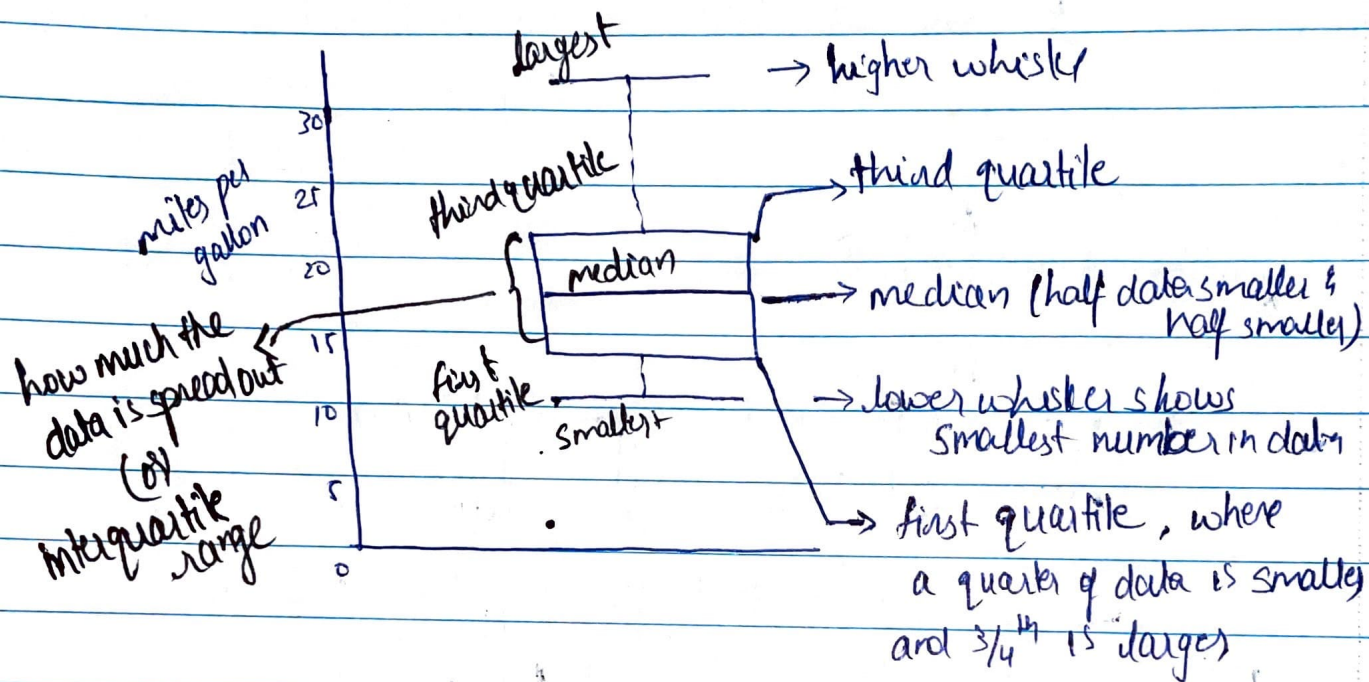 largest
→ higher whisker
30
third quartile
→ third quartile
miles per
gallon
25
20
median
→ median (half data smaller &
half smaller)
15
how much the
data is spread out
(or)
interquartile
range
first
quartile
smallest
→ lower whisker shows
smallest number in data
10
5
→ first quartile, where
a quarter of data is smaller
and 3/4th is larger
0